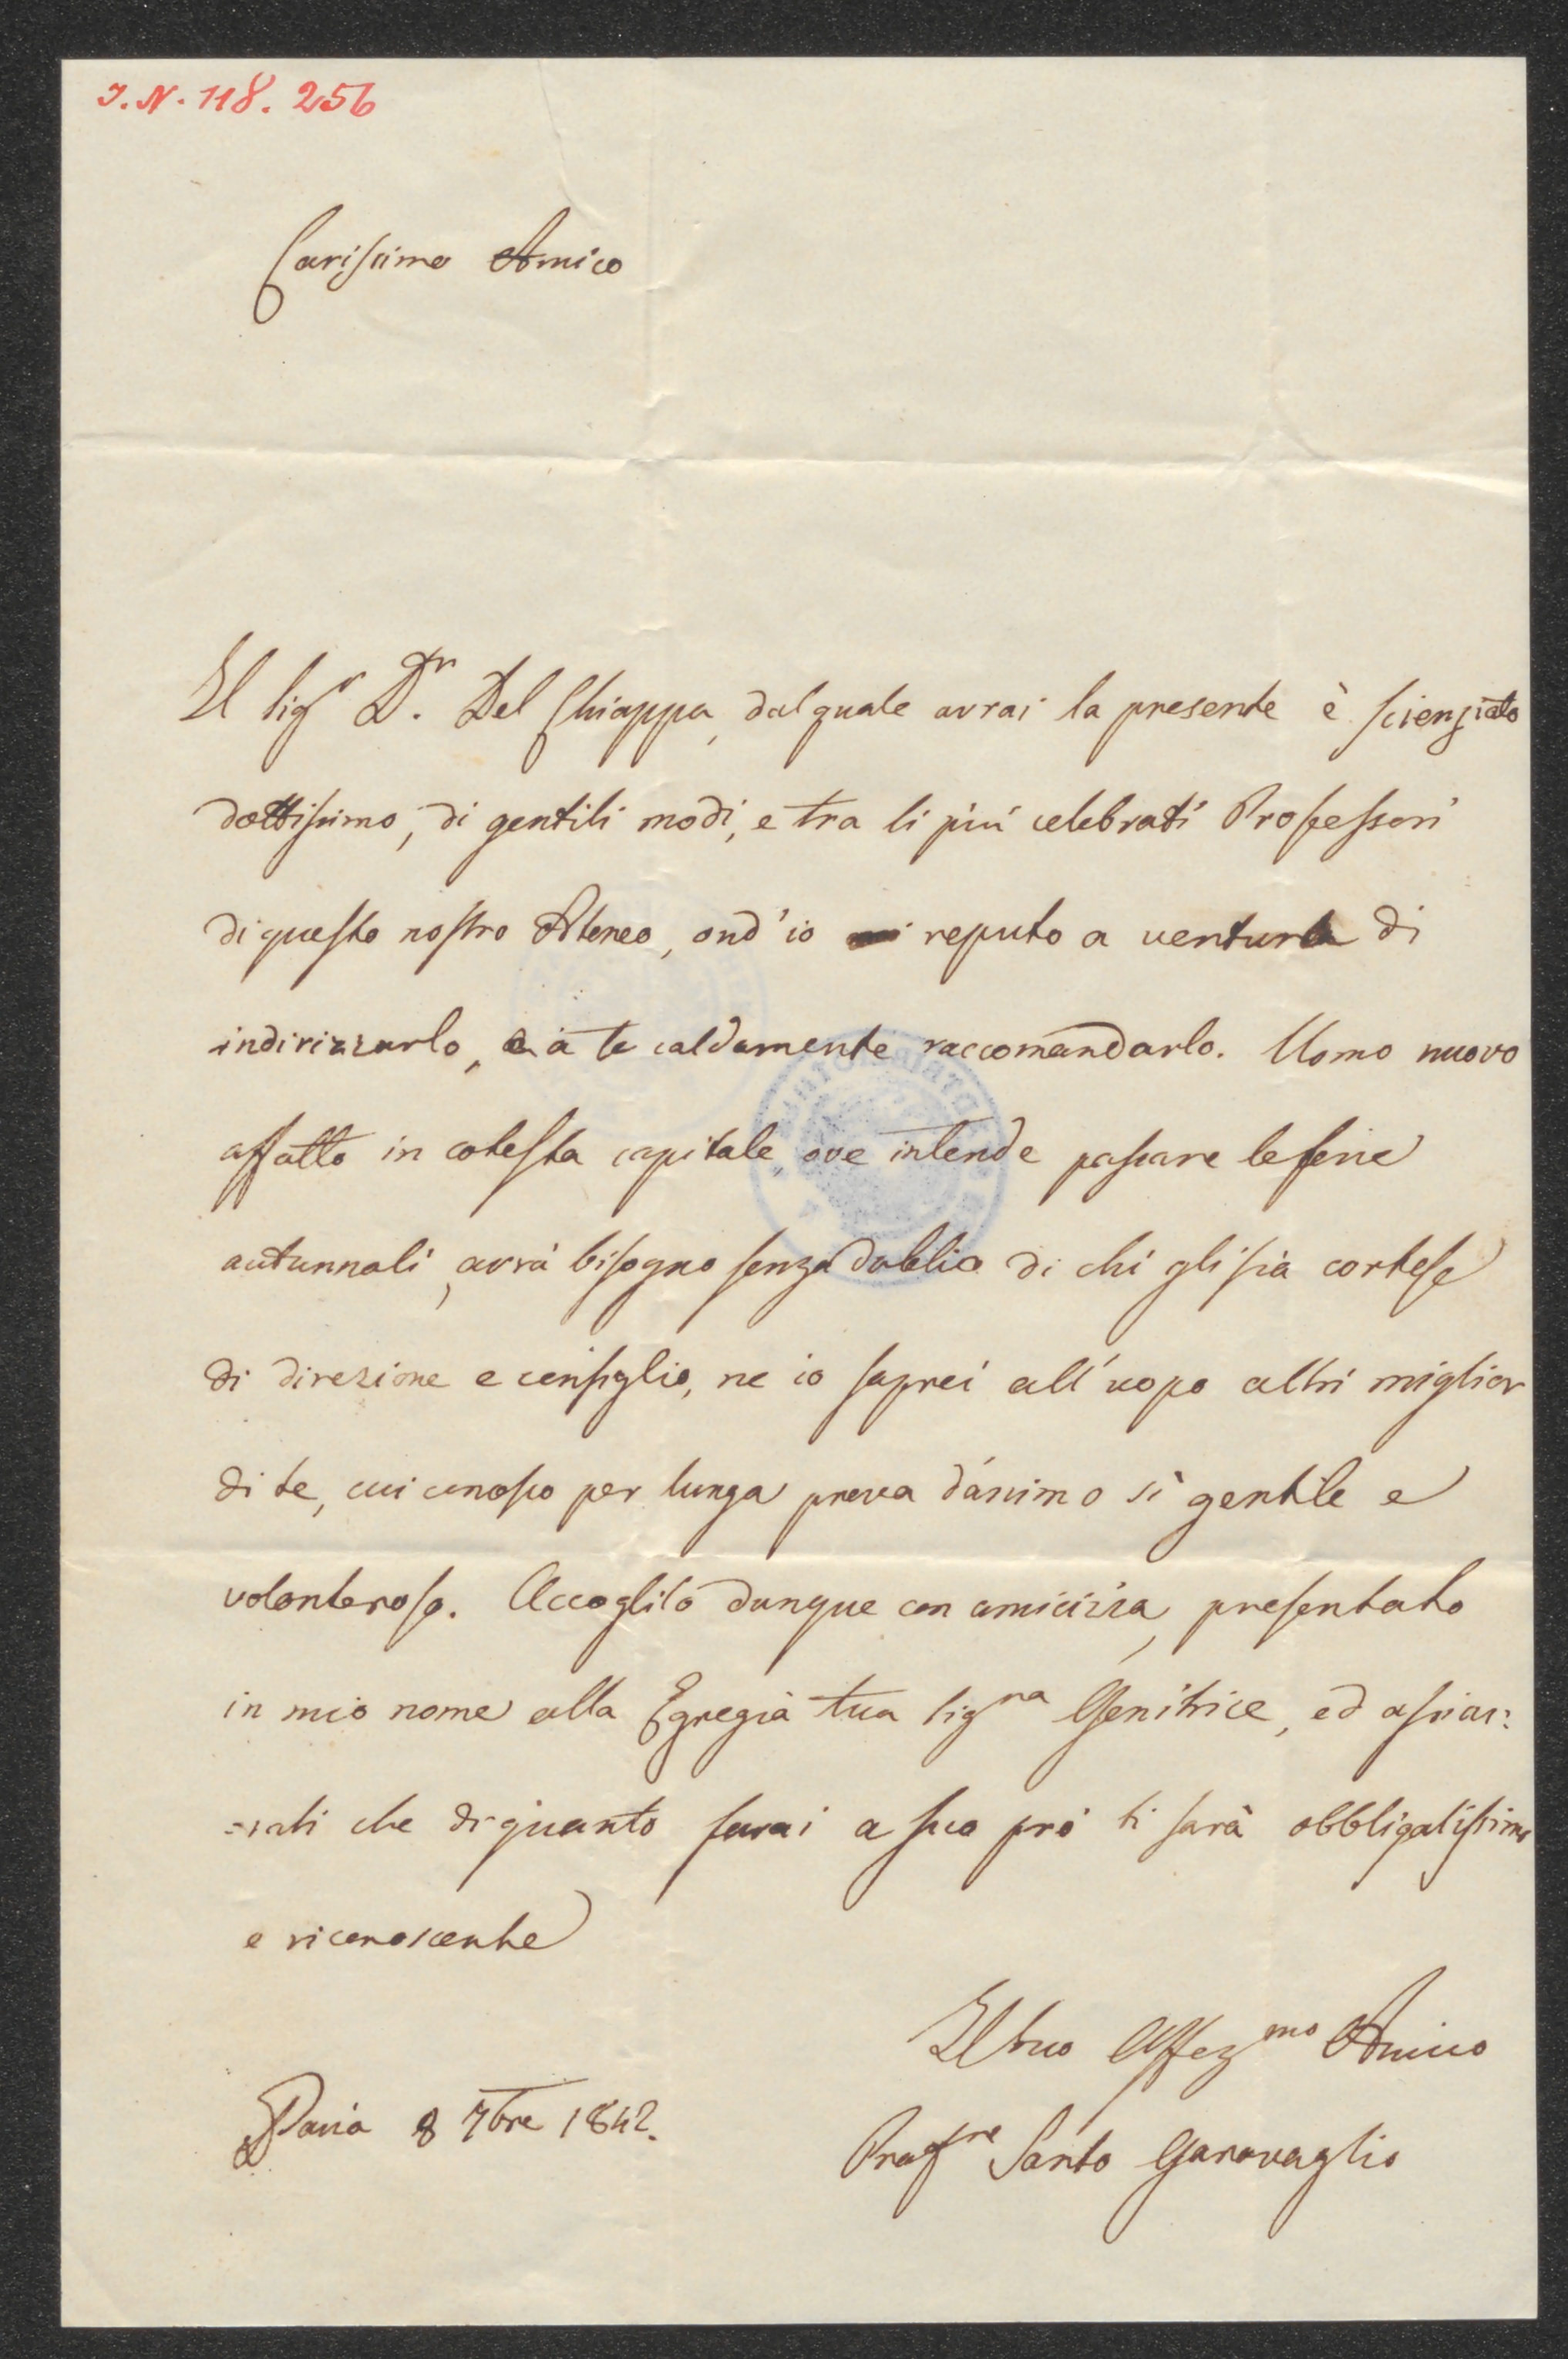 I. N. 118. 256
Carissimo Amico
Il Sigr Dr. Del Chiappa, dal quale avrai la presente è scienziato
dottissimo, di gentili modi, e tra li più celebrati Professori
di questo nostro Ateneo, ond'io reputo a ventura di
indirizzarlo, e a te caldamente raccomandarlo. Uomo nuovo
affatto in cotesta capitale, ove intende passare le ferie
autunnali, avrà bisogno senza dubbio di chi gli sia cortese
di direzione e consiglio, ne io saprei all'uopo altri miglior
di te, cui conosco per lunga prova d'animo sì gentile e
volonteroso. Accoglilo dunque con amicizia, presentato
in mio nome alla Egregia tua Sigra Genitrice, ed
che di quanto farai a suo prò ti sarà obbligatissimo
e riconoscente
Il tuo Affezmo Amico
Profre Santo Garovaglio
Pavia 8 7bre 1842.